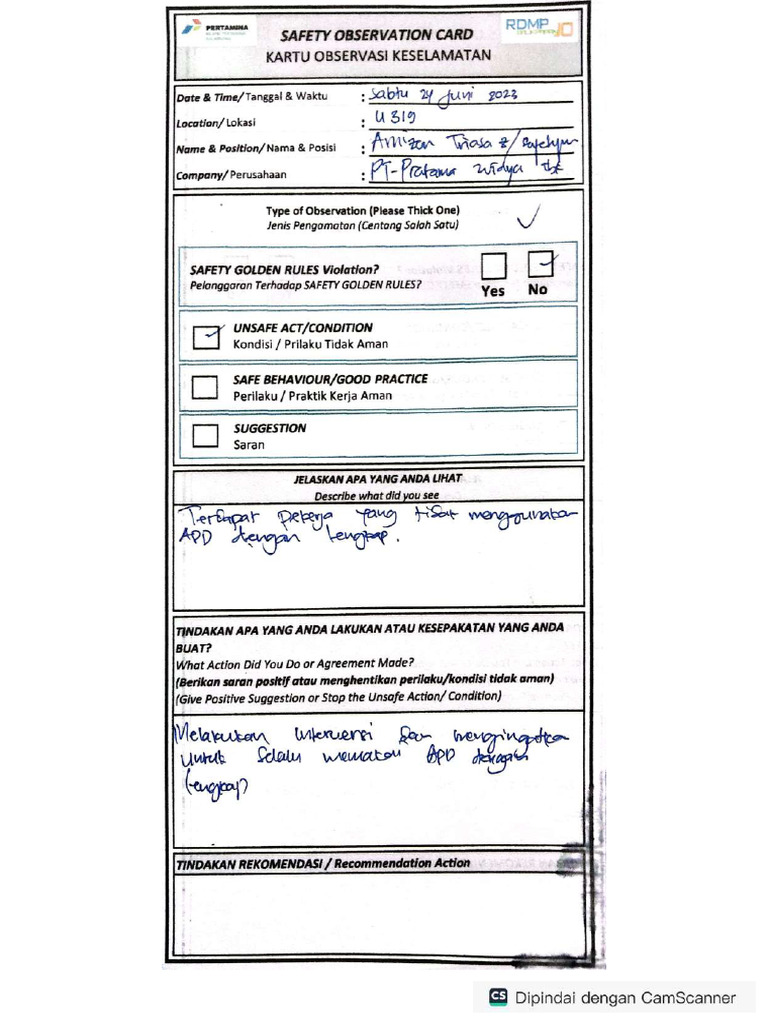 PERTAMINA
SAFETY OBSERVATION CARD
KARTU OBSERVASI KESELAMATAN
RDMP
Date & Time/Tanggal & Waktu : Sabtu 24 Juni 2023
Location/ Lokasi : U 319
Name & Position/ Nama & Posisi : Amizan Triasa /
Company/ Perusahaan : PT-Pratama Widya Tbk
Type of Observation (Please Thick One)
Jenis Pengamatan (Centang Salah Satu)
SAFETY GOLDEN RULES Violation?
Pelanggaran Terhadap SAFETY GOLDEN RULES?
Yes No
UNSAFE ACT/CONDITION
Kondisi / Prilaku Tidak Aman
SAFE BEHAVIOUR/GOOD PRACTICE
Perilaku / Praktik Kerja Aman
SUGGESTION
Saran
JELASKAN APA YANG ANDA LIHAT
Describe what did you see
Terdapat pekerja yang tidak menggunakan
APD dengan lengkap.
TINDAKAN APA YANG ANDA LAKUKAN ATAU KESEPAKATAN YANG ANDA
BUAT?
What Action Did You Do or Agreement Made?
(Berikan saran positif atau menghentikan perilaku/kondisi tidak aman)
(Give Positive Suggestion or Stop the Unsafe Action/ Condition)
Melakukan intervensi dan mengingatkan
untuk selalu memakai APD dengan
lengkap
TINDAKAN REKOMENDASI / Recommendation Action
CS Dipindai dengan CamScanner